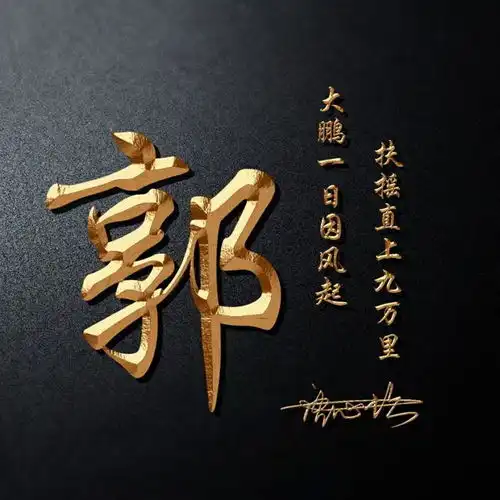 郭
大鹏一日因风起
扶摇直上九万里